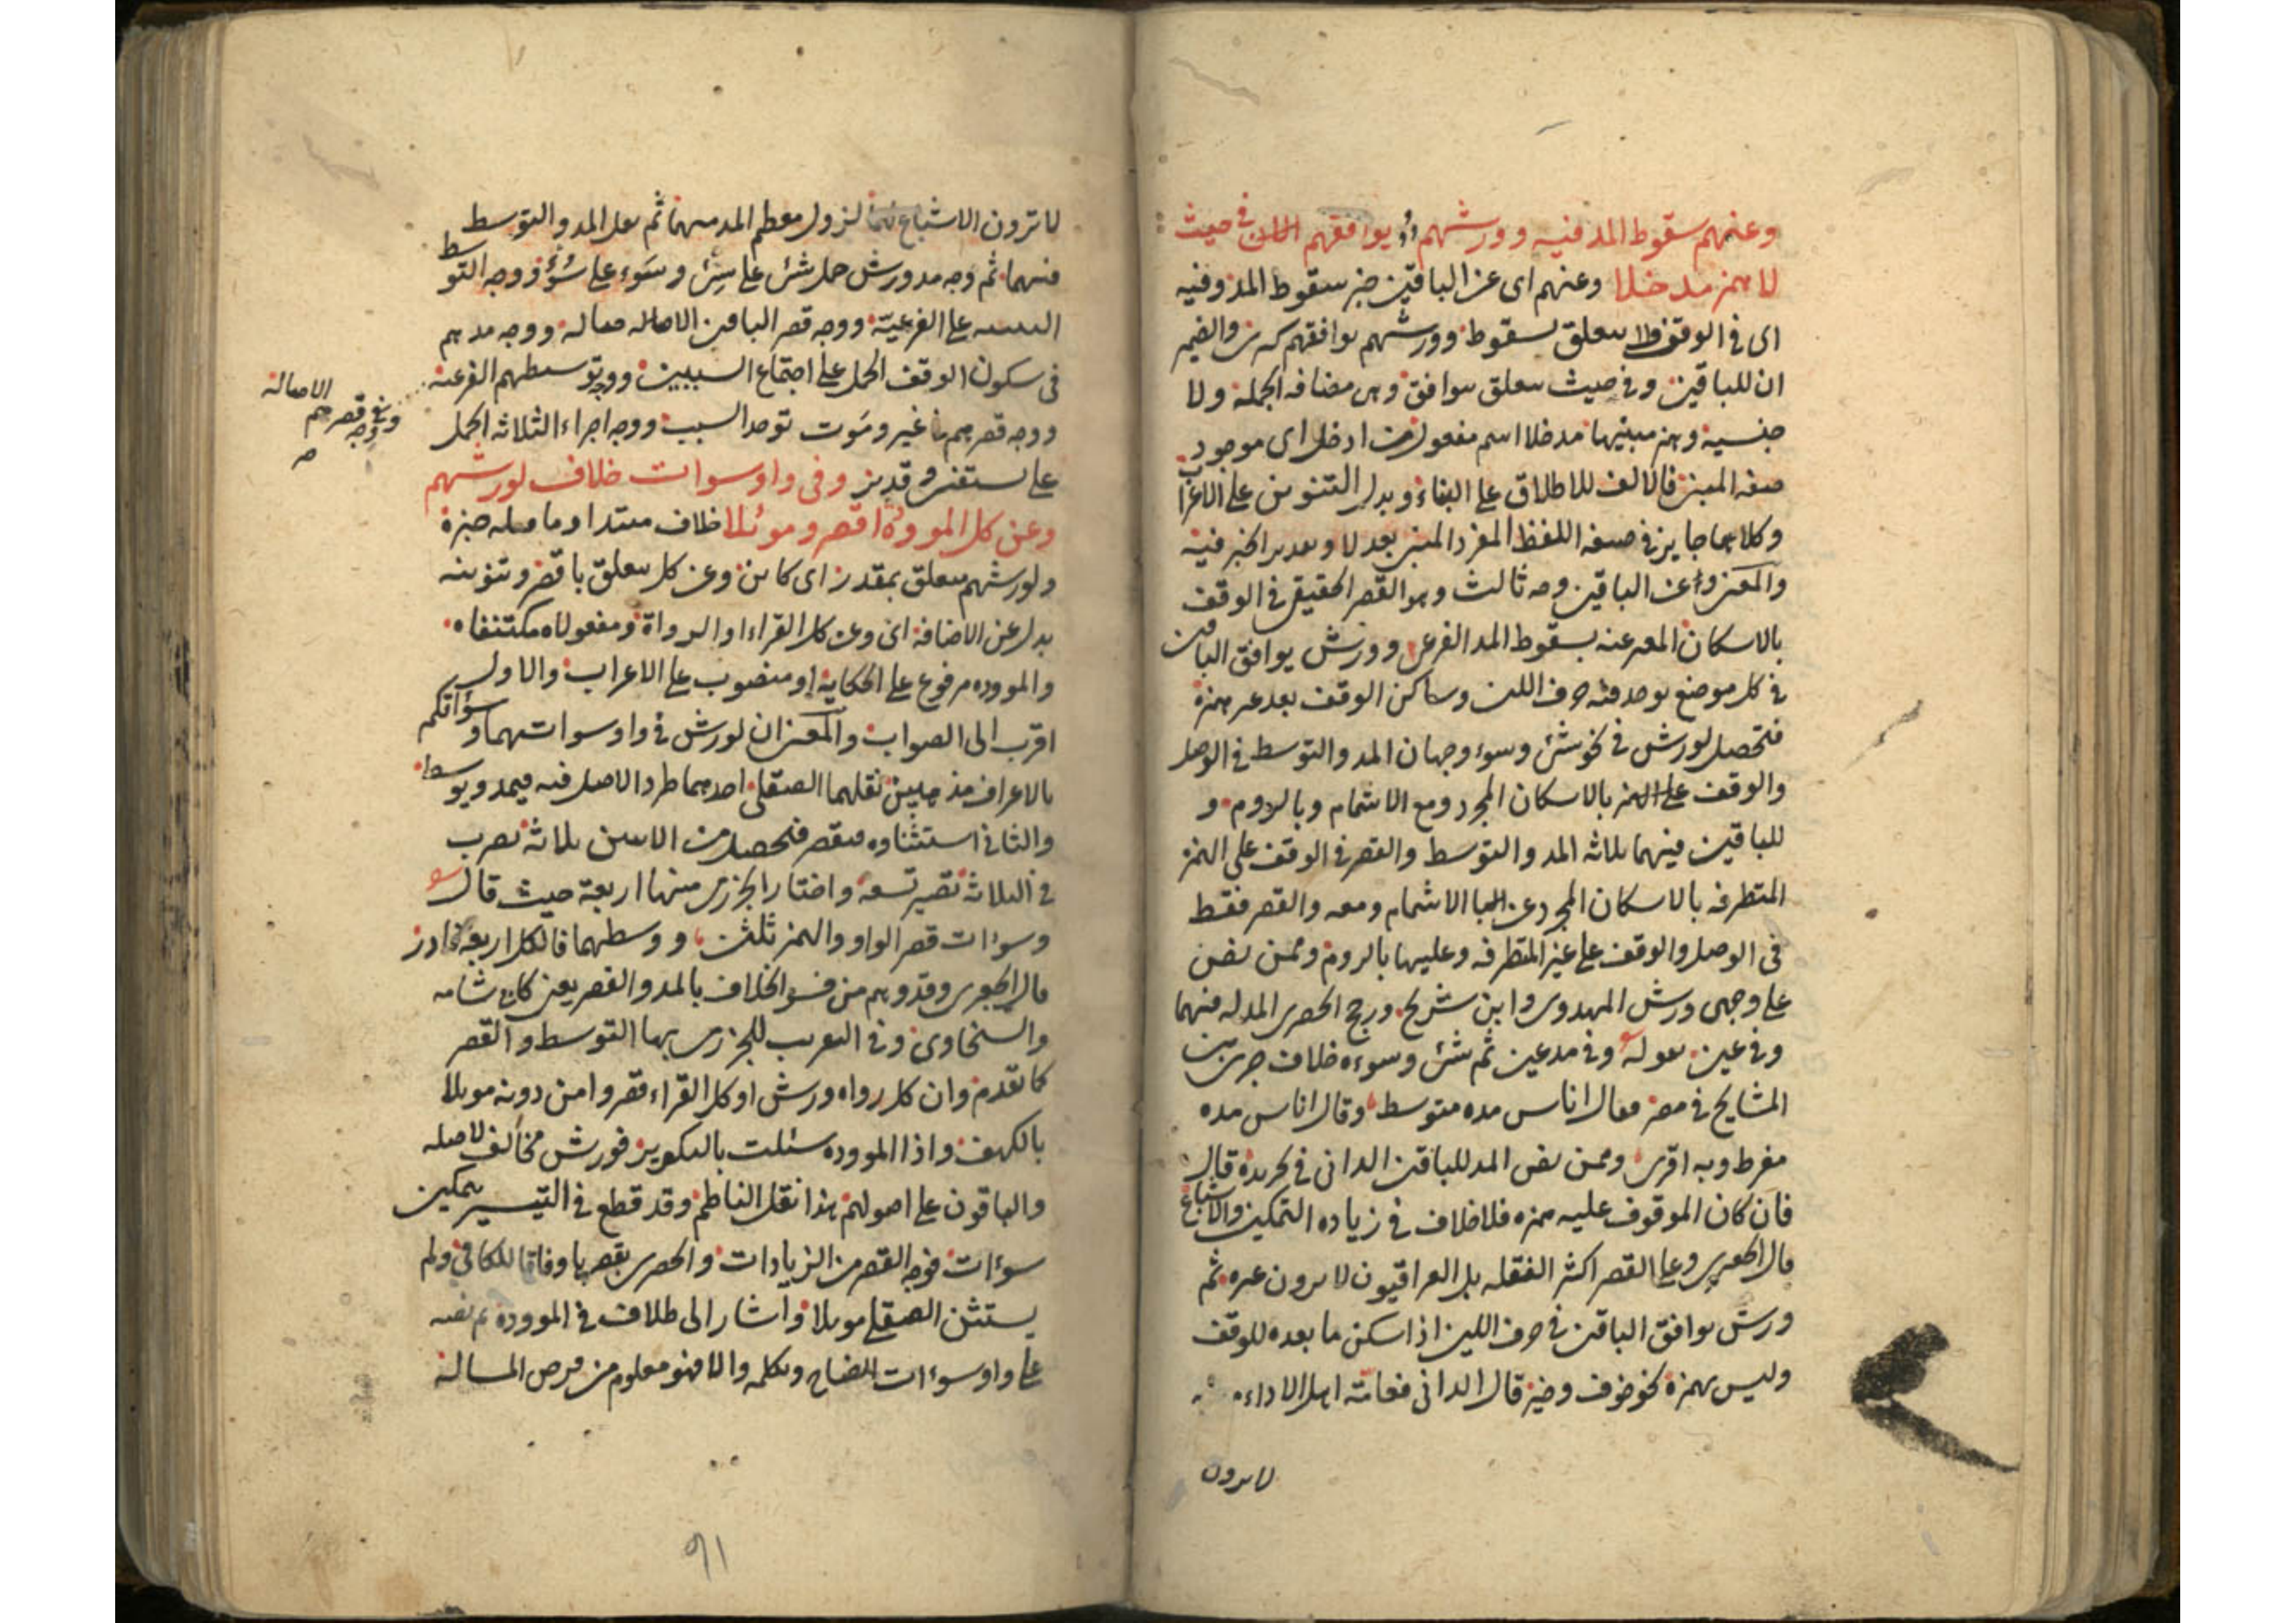 وعنهم سقوط المد فيه وورشهم يوافقهم في حيث
لا همز مدخلا وعنهم اى عن الباقين خبر سقوط المد وفيه
اى في الوقف متعلق بسقوط وورشهم يوافقهم والضمير
ان للباقين وفي حيث متعلق بيوافق وهى مضافه الجملة ولا
جنسية وهمز مبنيها مدخلا اسم مفعول من ادخل اى موجود
صفه المبنى فالالف للاطلاق على البناء وبدل التنوين على الاعراب
وكلاهما جايز في صفه اللفظ المفرد المبنى بعد لا وتقدير الخبر فيه
والمعنى وعن الباقين وجه ثالث وهو القصر الحقيقى في الوقف
بالاسكان المعبر عنه بسقوط المد الفرعى وورش يوافق الباقين
في كل موضع يوجد فيه حرف اللين وساكن الوقف بعد غير همزة
فتحصل لورش في نحو شئ وسوء وجهان المد والتوسط في الوصل
والوقف على الهمز بالاسكان المجرد ومع الاشمام وبالروم و
للباقين فيهما ثلاثه المد والتوسط والقصر في الوقف على الهمز
المتطرفه بالاسكان المجرد عن الاشمام ومعه والقصر فقط
في الوصل والوقف على غير المتطرفه وعليها بالروم وممن نص
على وجهى ورش المهدوى وابن شريح ورجح الحصرى المد له فيهما
وفي عين بقوله وفي مد عين ثم شئ وسوءه خلاف جرى بين
المشايخ في مصر فقال اناس مده متوسط وقال اناس مده
مفرط وبه اقرى وممن نص المد للباقين الدانى في تجريده قال
فان كان الموقوف عليه همزه فلا خلاف في زياده التمكين والاشباع
قال الجعبرى وعلى القصر اكثر النقله بل العراقيون لا يرون غيره ثم
ورش يوافق الباقين في حرف اللين اذا سكن ما بعده للوقف
وليس بهمزة نحو خوف وخير قال الدانى فعامته اهل الاداء
لا يرون
لا يرون الاشباع لزول معظم المد منهما ثم نقل المد والتوسط
فيهما ثم وجه مد ورش حمل شئ على سئ وسوء على سوء ووجه التوسط
التنبيه على الفرعية ووجه قصر الباقين الاصاله ووجه مدهم
في سكون الوقف الحمل على اجتماع السببين ووجه توسطهم الفرعية
ووجه قصرهم في غير وموت توحد السبب ووجه اجراء الثلاثه الحمل
على نستعين وقدير وفى واو سوات خلاف لورشهم
وعن كل الموودة اقصر وموئلا خلاف مبتدا وما قبله خبره
ولورشهم متعلق بمقدر اى كاين وعن كل متعلق باقصر وتنوينه
بدل عن الاضافة اى وعن كل القراء او الرواة ومفعولاه مكتنفاه
والمووده مرفوع على الحكاية او منصوب على الاعراب والاول
اقرب الى الصواب والمعنى ان لورش في واو سوات تهما وسوآتكم
بالاعراف مذهبين نقلهما الصقلى احدهما طرد الاصل فيه فيمد ويوسط
والثانى استثناوه فيقصر فتحصل من الاثنين ثلاثه تضرب
في الثلاثه تصير تسعة واختار الجزرى منها اربعة حيث قال
وسوءات قصر الواو والهمز ثلثن ووسطهما فالكل اربعة فادر
قال الجعبرى وقد وهم من فسر الخلاف بالمد والقصر يعنى كابى شامه
والسخاوى وفي التعريب للجزرى بها التوسط والقصر
كما تقدم وان كل رواه ورش او كل القراء قصروا من دونه موئلا
بالكهف واذا المووده سئلت بالتكوير فورش مخالف لاصله
والباقون على اصولهم هذا نقل الناظم وقد قطع في التيسير بتمكين
سوءات فوجه القصر من الزيادات والحصرى بقصرها وفاقا للكافى ولم
يستثن الصقلى موئلا واشار الى خلاف في الموودة ثم نصه
على واو سوءات ايضاح وتكلمه والا فهو معلوم من فرض المساله
الاصالة
ووجه قصرهم
صح
91